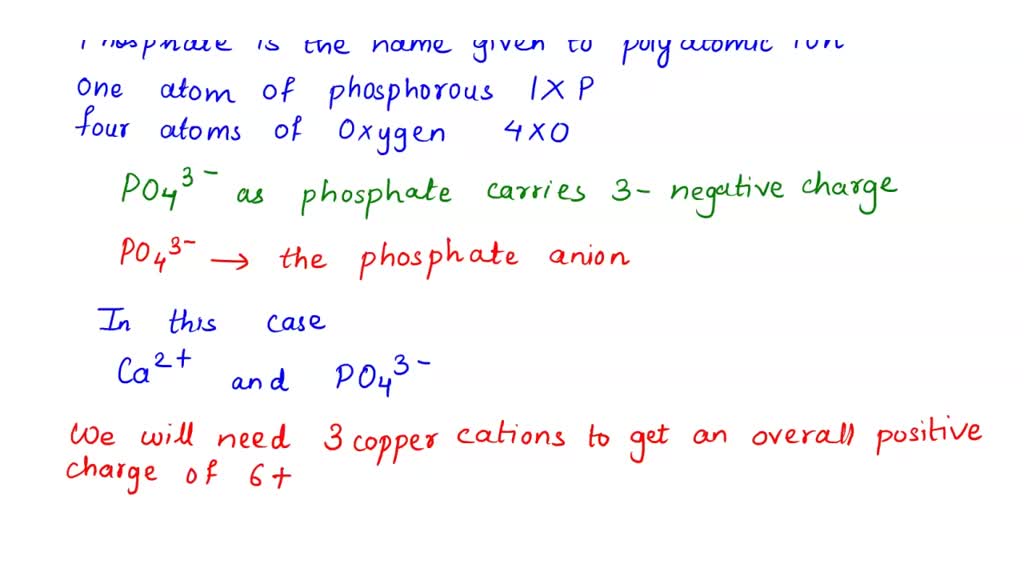 Phosphate is the name given to polyatomic ion
One atom of phosphorous 1XP
four atoms of Oxygen 4XO
PO₄³⁻ as phosphate carries 3- negative charge
PO₄³⁻ → the phosphate anion
In this case
Ca²⁺ and PO₄³⁻
We will need 3 copper cations to get an overall positive
charge of 6+